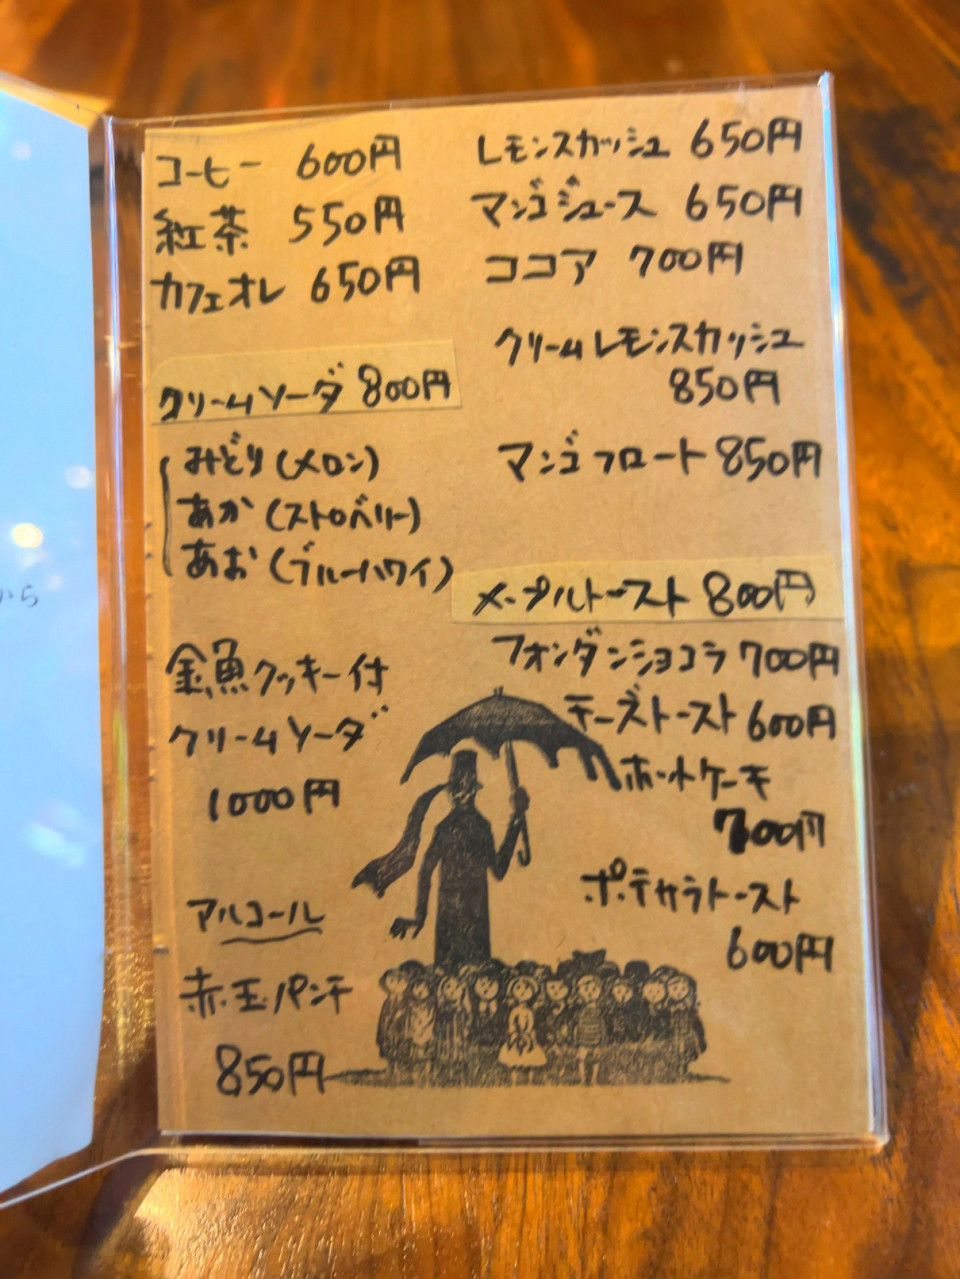 コーヒー 600円
紅茶 550円
カフェオレ 650円
クリームソーダ 800円
みどり(メロン)
あか(ストロベリー)
あお(ブルーハワイ)
金魚クッキー付
クリームソーダ
1000円
アルコール
赤玉パンチ
850円
レモンスカッシュ 650円
マンゴジュース 650円
ココア 700円
クリームレモンスカッシュ
850円
マンゴフロート 850円
メープルトースト 800円
フォンダンショコラ 700円
チーズトースト 600円
ホットケーキ
700円
ポテサラトースト
600円
から